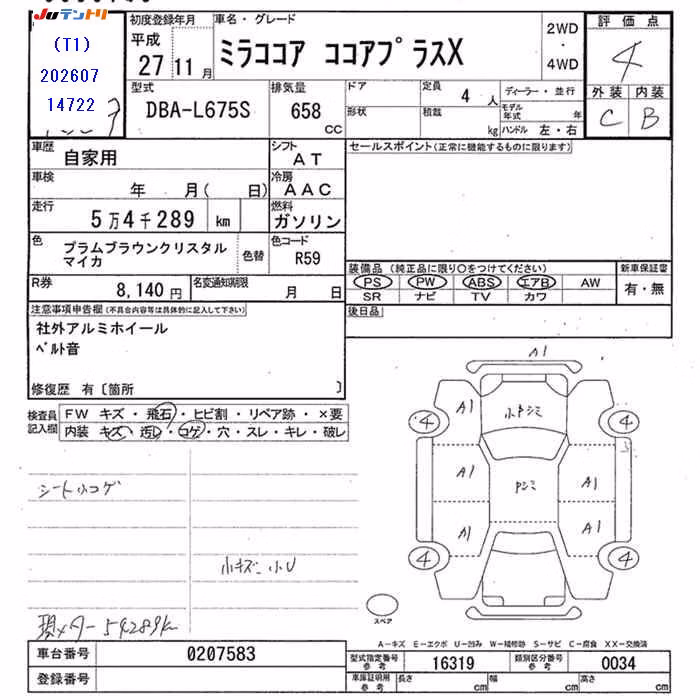 Juテントリ
(T1)
202607
14722
初度登録年月
平成
27 11 月
車名・グレード
ミラココア ココアプラスX
2WD
・
4WD
評価点
4
外装 内装
C B
型式
DBA-L675S
排気量
658
CC
ドア
形状
定員
4 人
積載
kg
ディーラー・並行
モデル年式 年
ハンドル 左・右
車歴
自家用
シフト
AT
車検
年 月( 日)
冷房
AAC
走行
5万4千289 km
燃料
ガソリン
色
プラムブラウンクリスタル
マイカ
色替
色コード
R59
R券
8,140 円
名変通知期限
月 日
セールスポイント(正常に機能するものに限ります)
装備品(純正品に限り○をつけてください)
PS PW ABS エアB AW
SR ナビ TV カワ
新車保証書
有・無
後日品
注意事項申告欄(不具合内容等は具体的に記入して下さい)
社外アルミホイール
ベルト音
修復歴 有〔箇所 〕
検査員
記入欄
FW キズ・飛石・ヒビ割・リペア跡・×要
内装 キズ・汚レ・コゲ・穴・スレ・キレ・破レ
シート小コゲ
小キズ、小U
現メーター54289km
A1
4 A1 小ヤシミ 4
A1 ヤシミ A1
A1 A1
4 4
スペア
A-キズ E-エクボ U-凹み W-補修跡 S-サビ C-腐食 XX-交換済
車台番号
0207583
登録番号
型式指定番号
参考
16319
類別区分番号
参考
0034
車庫証明用
参考
長さ cm 幅 cm 高さ cm